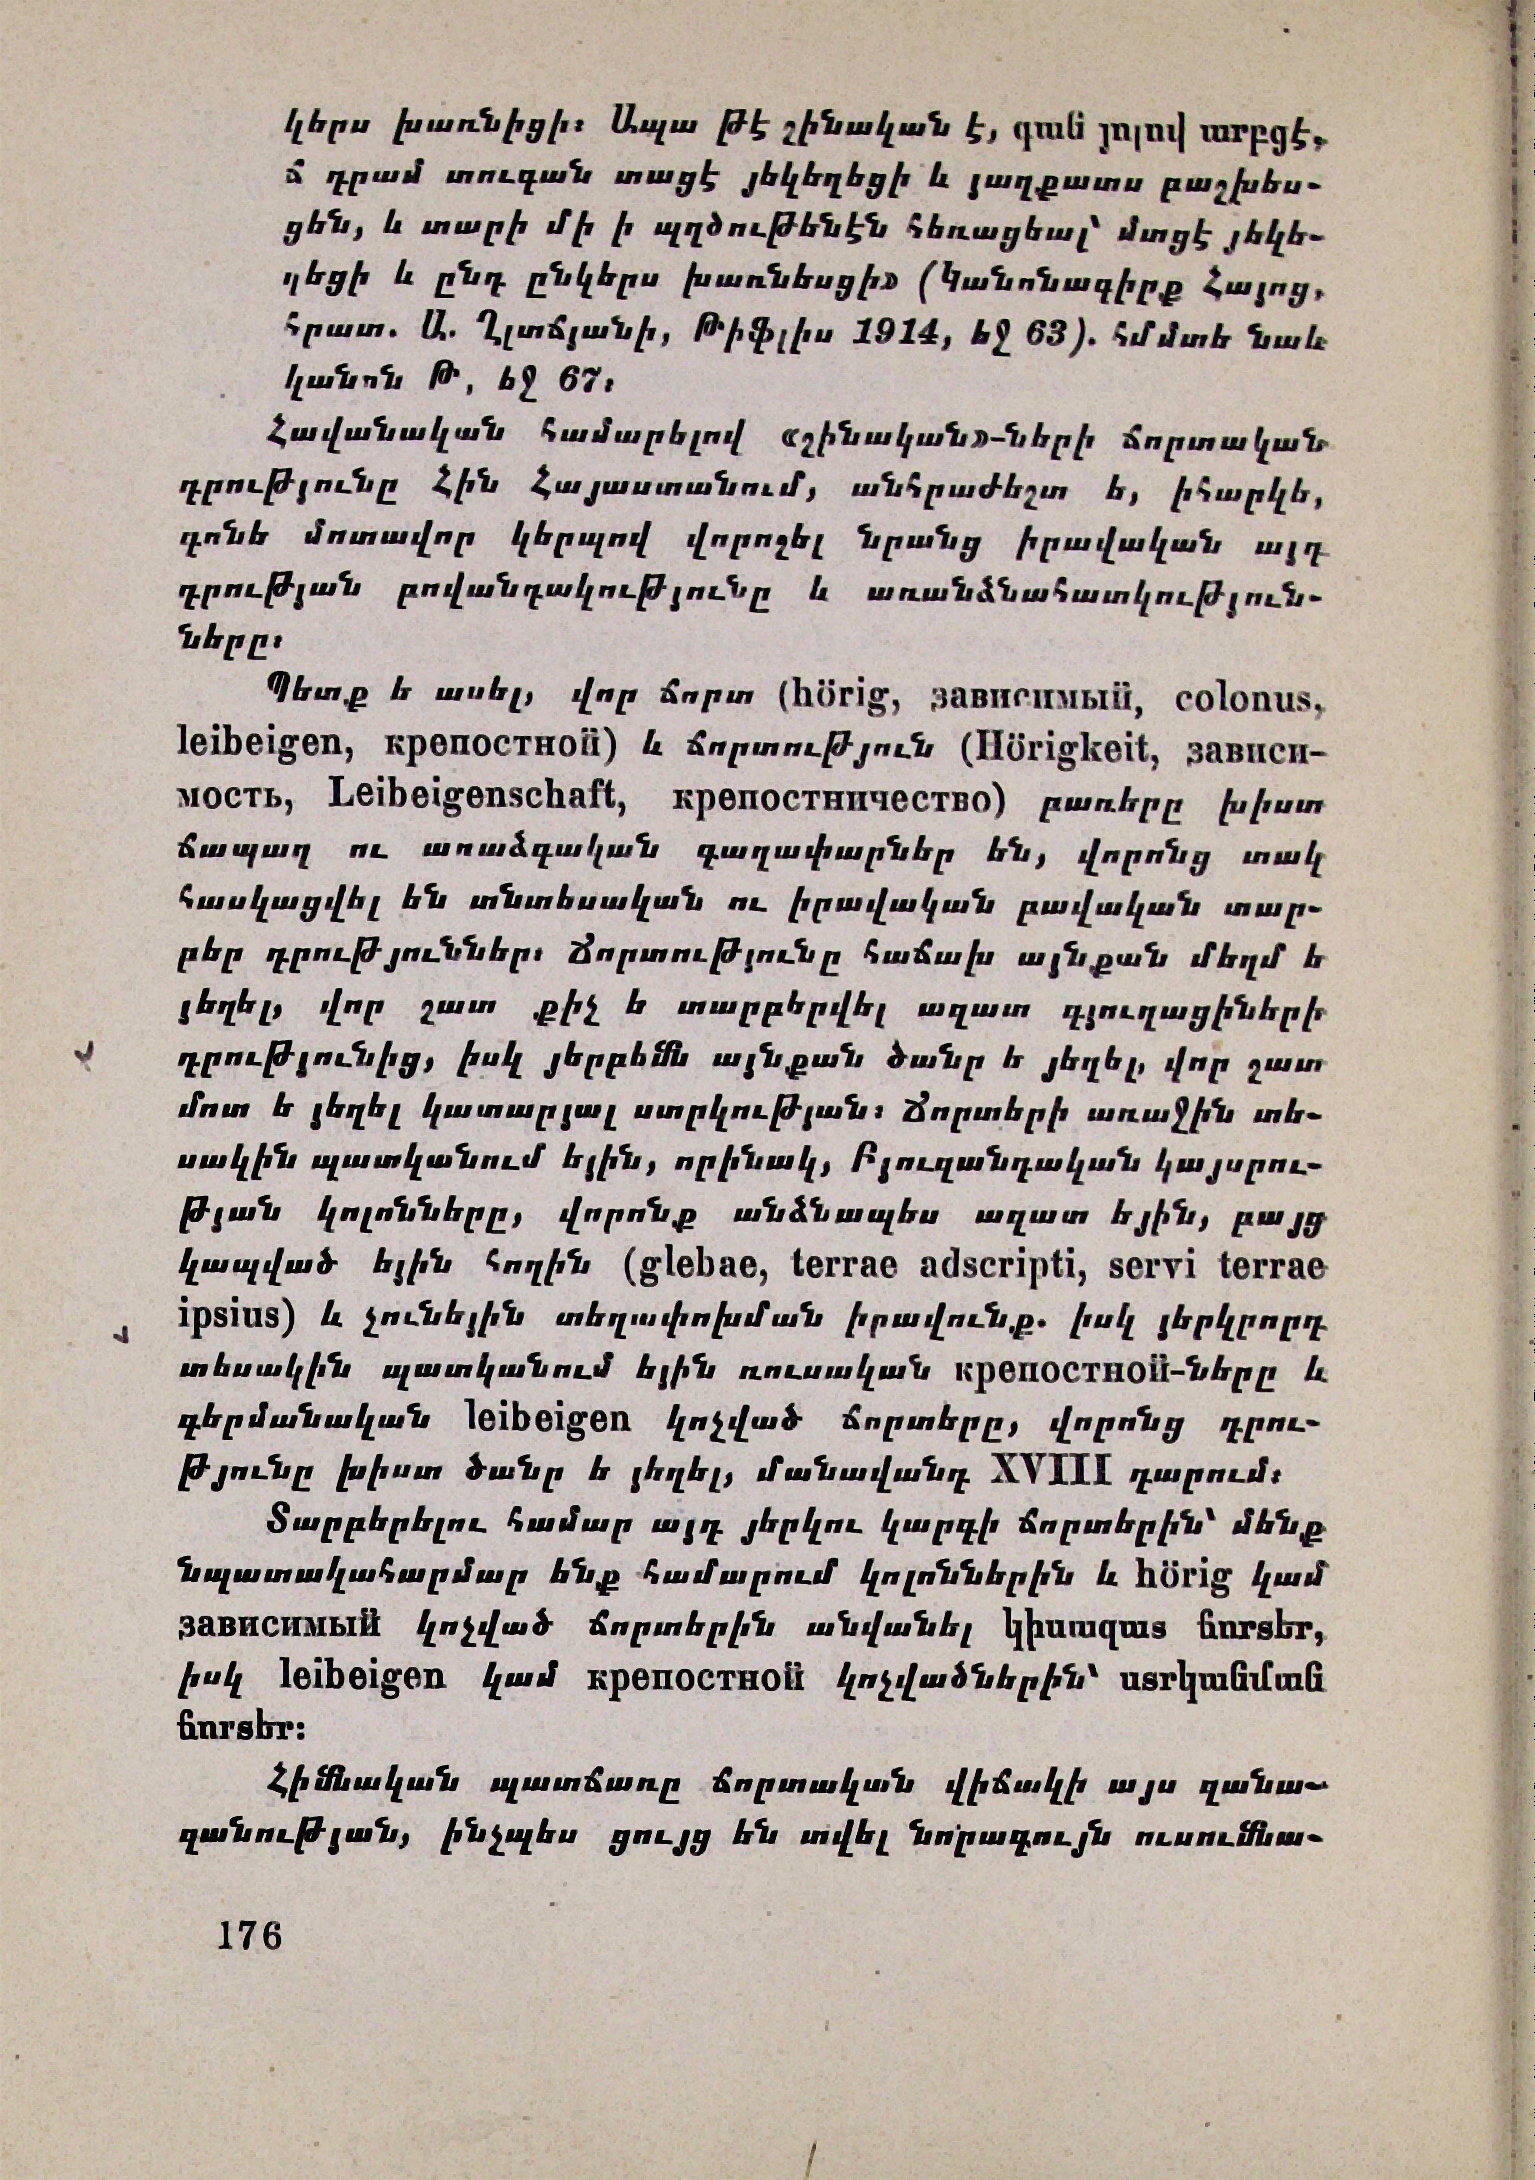 կերս խառնիցի։ Ապա թէ շինական է, գան յոլով արբցէ,
ճ դրամ տուգան տացէ յեկեղեցի և յաղքատս բաշխես-
ցեն, և տարի մի ի պղծութենէն հեռացեալ՝ մտցէ յեկե-
ղեցի և ընդ ընկերս խառնեսցի» (Կանոնագիրք Հայոց,
հրատ. Ա. Ղլտճյանի, Թիֆլիս 1914, եջ 63). հմմտե նաև
կանոն Թ, եջ 67։
Հավանական համարելով «շինական»-ների ճորտական
դրությունը Հին Հայաստանում, անհրաժեշտ ե, իհարկե,
գոնե մոտավոր կերպով վորոշել նրանց իրավական այդ
դրության բովանդակությունը և առանձնահատկություն-
ները։
Պետք ե ասել, վոր ճորտ (hörig, зависимый, colonus,
leibeigen, крепостной) և ճորտություն (Hörigkeit, зависи-
мость, Leibeigenschaft, крепостничество) բառերը խիստ
ճապաղ ու առաձգական գաղափարներ են, վորոնց տակ
հասկացվել են տնտեսական ու իրավական բավական տար-
բեր դրություններ։ Ճորտությունը հաճախ այնքան մեղմ ե
յեղել, վոր շատ քիչ ե տարբերվել ազատ գյուղացիների
դրությունից, իսկ յերբեմն այնքան ծանր ե յեղել, վոր շատ
մոտ ե յեղել կատարյալ ստրկության։ Ճորտերի առաջին տե-
սակին պատկանում եյին, որինակ, Բյուզանդական կայսրու-
թյան կոլոնները, վորոնք անձնապես ազատ եյին, բայց
կապված եյին հողին (glebae, terrae adscripti, servi terrae
ipsius) և չունեյին տեղափոխման իրավունք. իսկ յերկրորդ
տեսակին պատկանում եյին ռուսական крепостной-ները և
գերմանական leibeigen կոչված ճորտերը, վորոնց դրու-
թյունը խիստ ծանր ե յեղել, մանավանդ XVIII դարում։
Տարբերելու համար այդ յերկու կարգի ճորտերին՝ մենք
նպատակահարմար ենք համարում կոլոններին և hörig կամ
зависимый կոչված ճորտերին անվանել կիսազատ ճորտեր,
իսկ leibeigen կամ крепостной կոչվածներին՝ ստրկանման
ճորտեր։
Հիմնական պատճառը ճորտական վիճակի այս զանա-
զանության, ինչպես ցույց են տվել նորագույն ուսումնա-
176